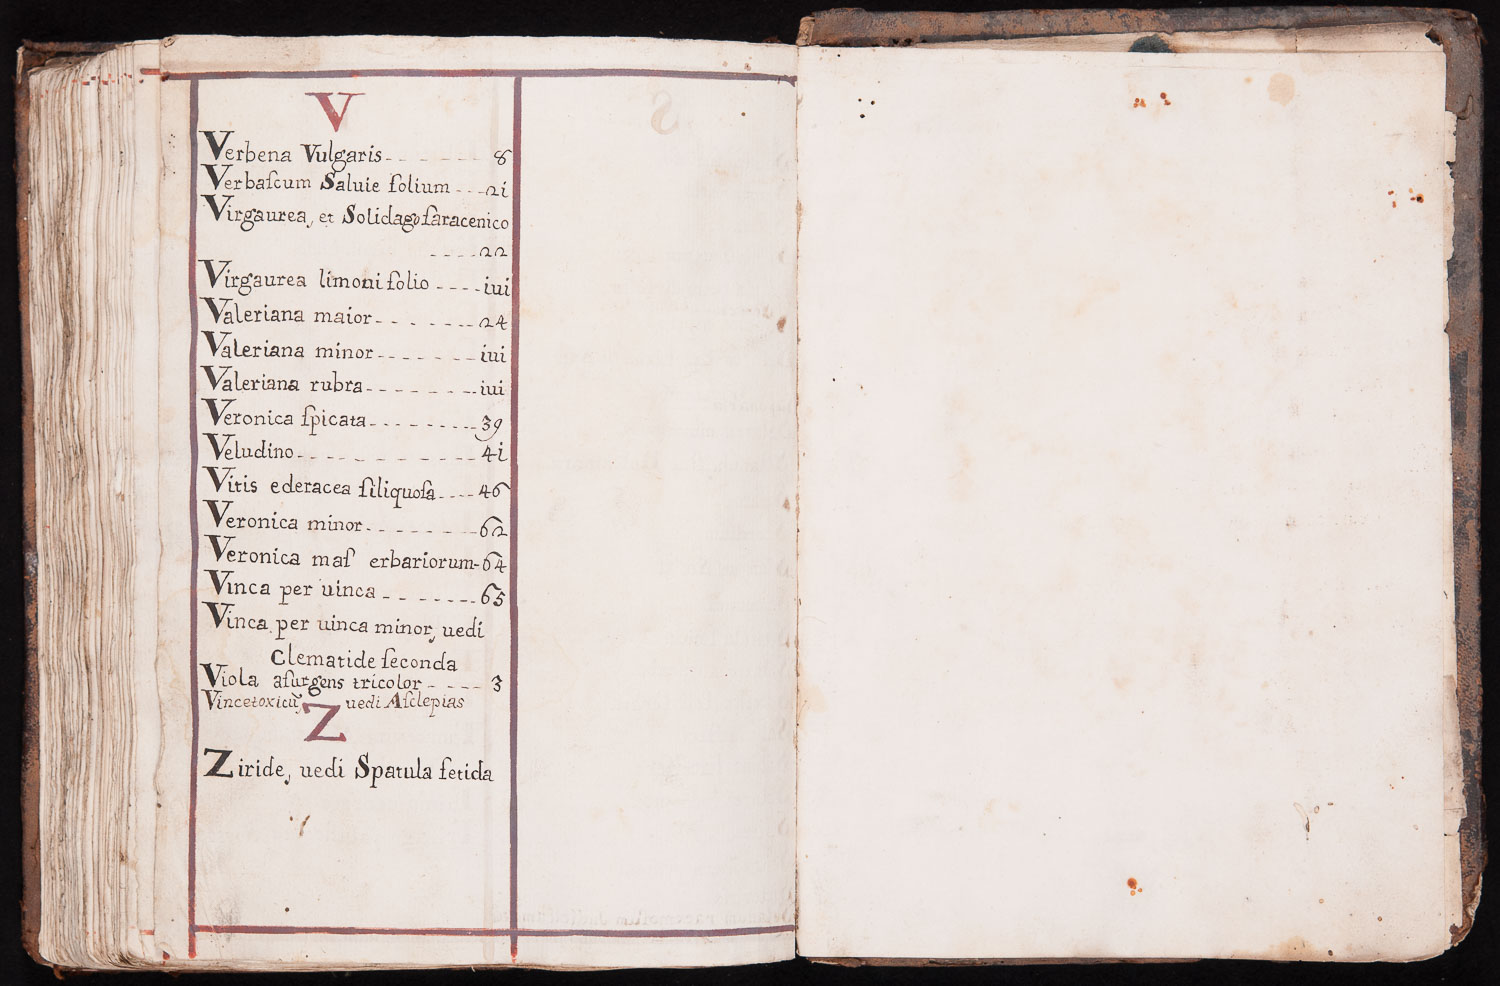 V
Verbena Vulgaris - - - - - - 8
Verbaſcum Saluie folium - - - 2i
Virgaurea, et Solidago ſaracenico
- - - - 22
Virgaurea limoni folio - - - - iui
Valeriana maior - - - - - - - 24
Valeriana minor - - - - - - - iui
Valeriana rubra - - - - - - - - iui
Veronica ſpicata - - - - - - - - 39
Veludino - - - - - - - - - - - 4i
Vitis ederacea ſiliquoſa - - - - 46
Veronica minor - - - - - - - - 62
Veronica maſ erbariorum - 64
Vinca per uinca - - - - - - - 65
Vinca per uinca minor, uedi
Clematide ſeconda
Viola aſurgens tricolor - - - - 3
Vincetoxicū, uedi Aſclepias
Z
Ziride, uedi Spatula fetida